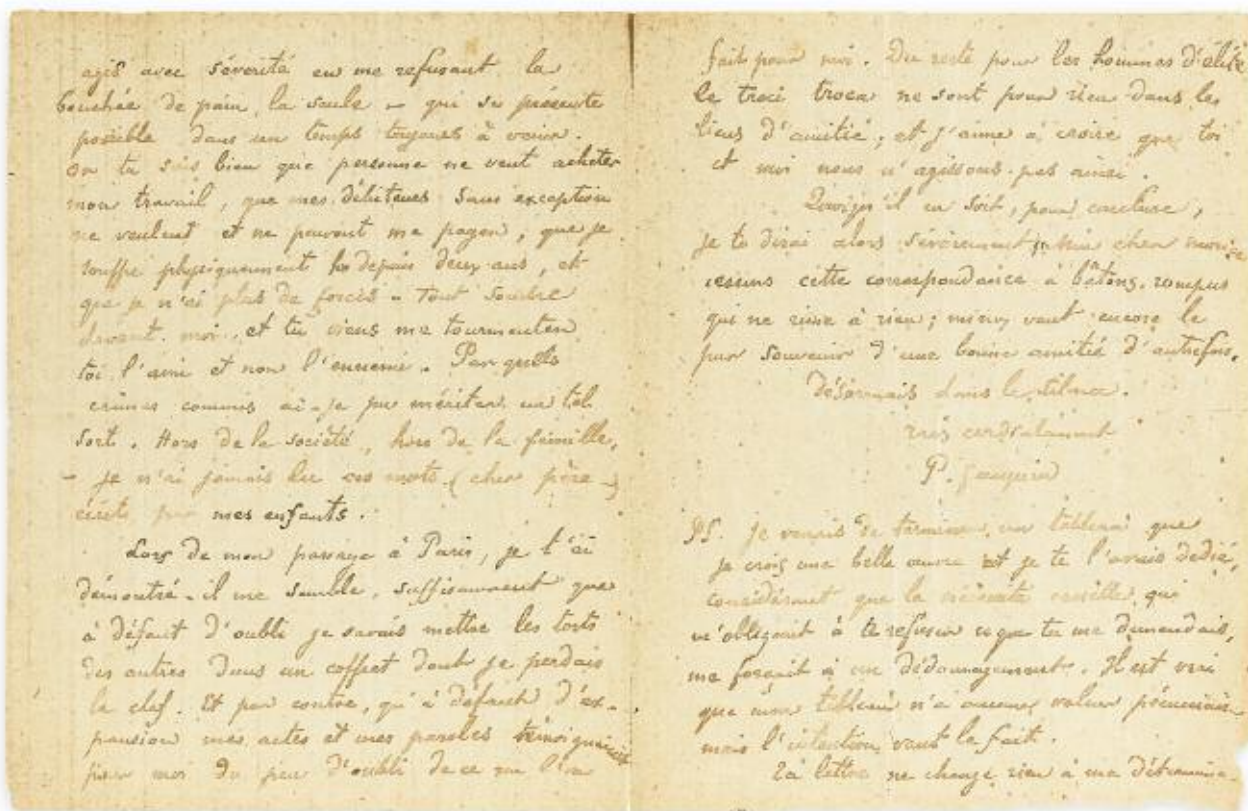 agis avec sévérité en me refusant la
bouchée de pain, la seule - qui se présente
possible dans un temps toujours à venir.
Or tu sais bien que personne ne veut acheter
mon travail, que mes débiteurs sans exception
ne veulent et ne peuvent me payer, que je
souffre physiquement depuis deux ans, et
que je n'ai plus de forces - Tout sombre
devant moi, et tu viens me tourmenter
toi l'ami et non l'ennemi. Par quels
crimes commis ai-je pu mériter un tel
sort. Hors de la société, hors de la famille,
- je n'ai jamais lu ces mots (cher père -)
écrits par mes enfants.
Lors de mon passage à Paris, je t'ai
démontré - il me semble, suffisamment que
à défaut d'oubli je savais mettre les torts
des autres dans un coffret dont je perdais
la clef. Et par contre, qu'à défaut d'ex-
pansion mes actes et mes paroles témoignaient
pour moi du peu d'oubli de ce que l'on
fait pour moi. Du reste pour les hommes d'élite
le troci troca ne sont pour rien dans les
liens d'amitié; et j'aime à croire que toi
et moi nous n'agissons pas ainsi.
Quoiqu'il en soit, pour conclure,
je te dirai alors sévèrement, mon cher Morice
cessons cette correspondance à bâtons-rompus
qui ne rime à rien; mieux vaut encore le
pur souvenir d'une bonne amitié d'autrefois.
Désormais dans le silence.
Très cordialement
P. Gauguin
PS. Je venais de terminer un tableau que
je crois une belle œuvre et je te l'avais dédié,
considérant que la nécessité cruelle qui
m'obligeait à te refuser ce que tu me demandais,
me forçait à un dédommagement. Il est vrai
que mon tableau n'a aucune valeur pécuniaire
mais l'intention vaut le fait.
Ta lettre ne change rien à ma détermina-